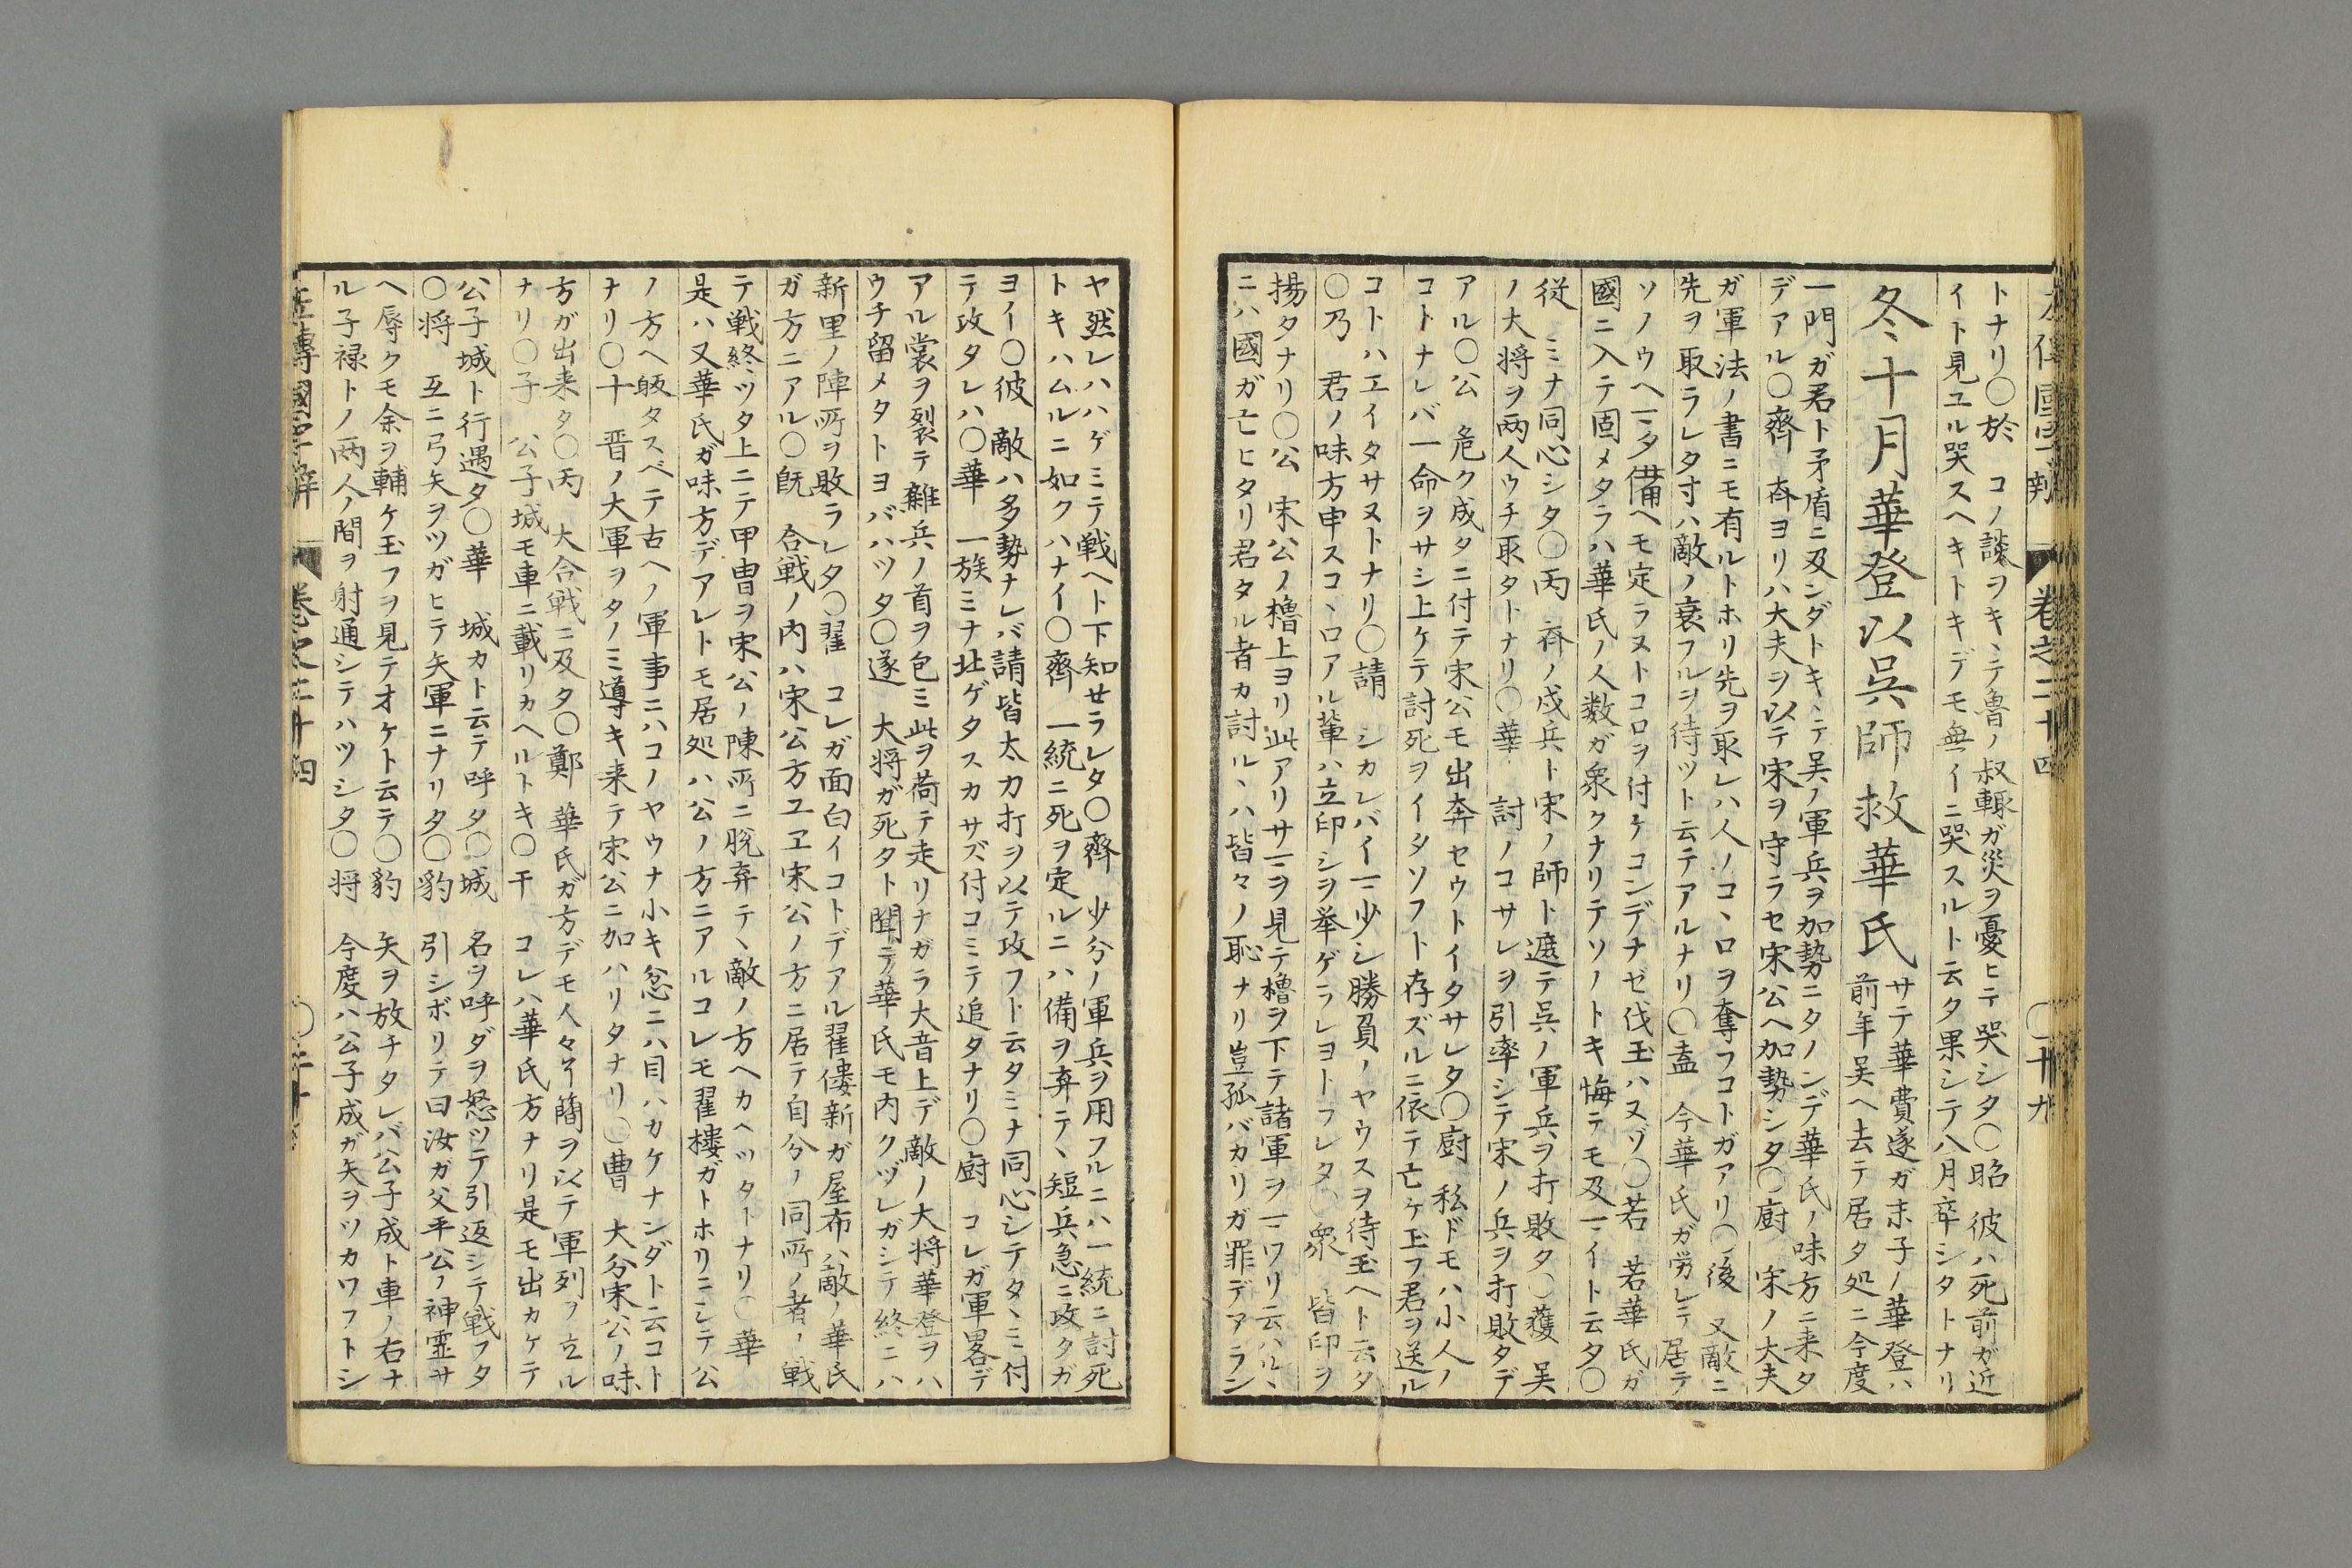 左傳國字辯 巻之二十四 〇二十九
トナリ〇於 コノ談ヲキヽテ魯ノ叔輙ガ災ヲ憂ヒテ哭シタ〇昭 彼ハ死前ガ近
イト見ユル哭スヘキトキデモ無イニ哭スルト云タ果シテ八月卒シタトナリ
冬十月華登以呉師救華氏
サテ華費遂ガ末子ノ華登ハ
前年呉ヘ去テ居タ処ニ今度
一門ガ君ト矛盾ニ及ンダトキヽテ呉ノ軍兵ヲ加勢ニタノンデ華氏ノ味方ニ来タ
デアル〇齊 斉ヨリハ大夫ヲ以テ宋ヲ守ラセ宋公ヘ加勢シタ〇廚 宋ノ大夫
ガ軍法ノ書ニモ有ルトホリ先ヲ取レハ人ノコヽロヲ奪フコトガアリ〇後 又敵ニ
先ヲ取ラレタ寸ハ敵ノ衰フルヲ待ツト云テアルナリ〇盍 今華氏ガ労レテ居テ
ソノウヘマタ備ヘモ定ラヌトコロヲ付ケコンデナゼ伐玉ハヌゾ〇若 若華氏ガ
國ニ入テ固メタラハ華氏ノ人数ガ衆クナリテソノトキ悔テモ及マイト云タ〇
従 ミナ同心シタ〇丙 斉ノ戍兵ト宋ノ師ト遮テ呉ノ軍兵ヲ打敗タ〇獲 呉
ノ大将ヲ両人ウチ取タトナリ〇華 討ノコサレヲ引率シテ宋ノ兵ヲ打敗タデ
アル〇公 危ク成タニ付テ宋公モ出奔セウトイタサレタ〇廚 私ドモハ小人ノ
コトナレバ一命ヲサシ上ケテ討死ヲイタソフト存ズルニ依テ亡ケ玉フ君ヲ送ル
コトハエイタサヌトナリ〇請 シカレバイマ少シ勝負ノヤウスヲ待玉ヘト云タ
〇乃 君ノ味方申スコヽロアル輩ハ立印シヲ挙ゲラレヨトフレタ〇衆 皆印ヲ
揚タナリ〇公 宋公ノ櫓上ヨリ此アリサマヲ見テ櫓ヲ下テ諸軍ヲマワリ云ハルヽ
ニハ國ガ亡ヒタリ君タル者カ討ルヽハ皆々ノ恥ナリ豈孤バカリガ罪デアラン
ヤ然レハハゲミテ戦ヘト下知せラレタ〇齊 少分ノ軍兵ヲ用フルニハ一統ニ討死
トキハムルニ如クハナイ〇齊 一統ニ死ヲ定ルニハ備ヲ弃テヽ短兵急ニ攻タガ
ヨイ〇彼 敵ハ多勢ナレバ請皆太刀打ヲ以テ攻フト云タミナ同心シテタヽミ付
テ攻タレハ〇華 一族ミナ北ゲタスカサズ付コミテ追タナリ〇廚 コレガ軍畧デ
アル裳ヲ裂テ雜兵ノ首ヲ包ミ此ヲ荷テ走リナガラ大音上デ敵ノ大将華登ヲハ
ウチ留メタトヨバハツタ〇遂 大将ガ死タト聞テ華氏モ内クヅレガシテ終ニハ
新里ノ陣所ヲ敗ラレタ〇翟 コレガ面白イコトデアル翟僂新ガ屋布ハ敵ノ華氏
ガ方ニアル〇既 合戦ノ内ハ宋公方ユヱ宋公ノ方ニ居テ自分ノ同所ノ者ノ戦
テ戦終ツタ上ニテ甲冑ヲ宋公ノ陳所ニ脱弃テヽ敵ノ方ヘカヘツタトナリ〇華
是ハ又華氏ガ味方デアレトモ居処ハ公ノ方ニアルコレモ翟樓ガトホリニシテ公
ノ方ヘ皈タスベテ古ヘノ軍事ニハコノヤウナ小キ忿ニハ目ハカケナンダト云コト
ナリ〇十 晋ノ大軍ヲタノミ導キ来テ宋公ニ加ハリタナリ〇曹 大分宋公ノ味
方ガ出来タ〇丙 大合戦ニ及タ〇鄭 華氏ガ方デモ人々ヿ蕳ヲ以テ軍列ヲ立ル
ナリ〇子 公子城モ車ニ載リカヘルトキ〇干 コレハ華氏方ナリ是モ出カケテ
公子城ト行遇タ〇華 城カト云テ呼タ〇城 名ヲ呼ダヲ怒ツテ引返シテ戦フタ
〇将 互ニ弓矢ヲツガヒテ矢軍ニナリタ〇豹 引シボリテ曰汝ガ父平公ノ神霊サ
ヘ辱クモ余ヲ輔ケ玉フヲ見テオケト云テ〇豹 矢ヲ放チタレバ公子成ト車ノ右ナ
ル子禄トノ両人ノ間ヲ射通シテハツシタ〇将 今度ハ公子成ガ矢ヲツカワフトシ
左傳國字辯 巻之二十四